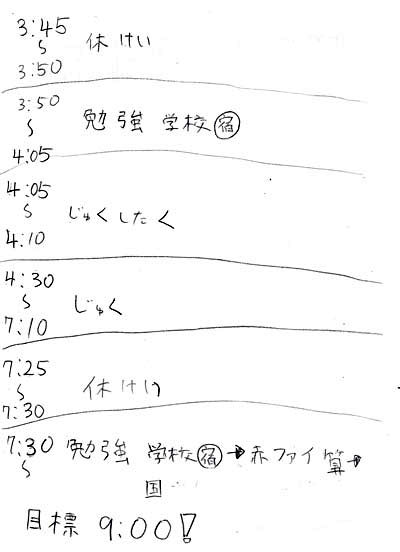 3:45
〜 休けい
3:50
3:50
〜 勉強 学校㊙宿
4:05
4:05
〜 じゅくしたく
4:10
4:30
〜 じゅく
7:10
7:25
〜 休けい
7:30
7:30 勉強 学校宿→赤ファイ算→
〜 国
目標 9:00!